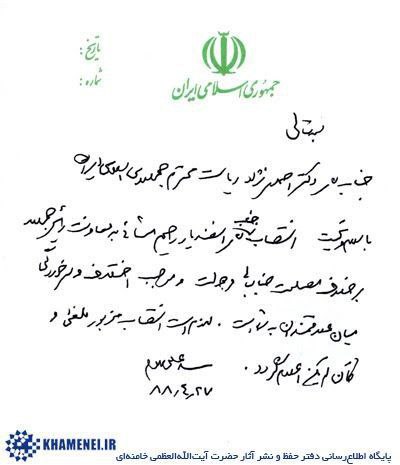 تاریخ:
شماره:
جمهوری اسلامی ایران
بسمه‌تعالی
جناب آقای دکتر احمدی نژاد ریاست محترم جمهوری اسلامی ایران
با سلام و تحیت انتصاب جناب آقای اسفندیار رحیم مشائی به معاونت رئیس جمهور
بر خلاف مصلحت جنابعالی و دولت و موجب اختلاف و سرخوردگی
میان علاقمندان به شما است. لازم است انتصاب مزبور ملغی و
کان لم یکن اعلام گردد.
سید علی خامنه‌ای
۸۸٫۴٫۲۷
KHAMENEI.IR
پایگاه اطلاع‌رسانی دفتر حفظ و نشر آثار حضرت آیت‌الله‌العظمی خامنه‌ای